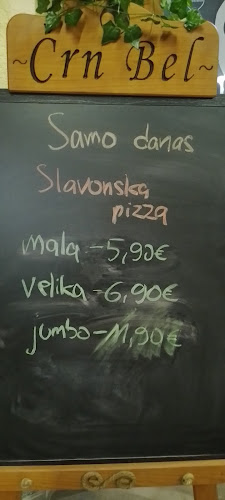 ~Crn Bel~
Samo danas
Slavonska
pizza
mala - 5,90€
velika - 6,90€
jumbo - 11,90€